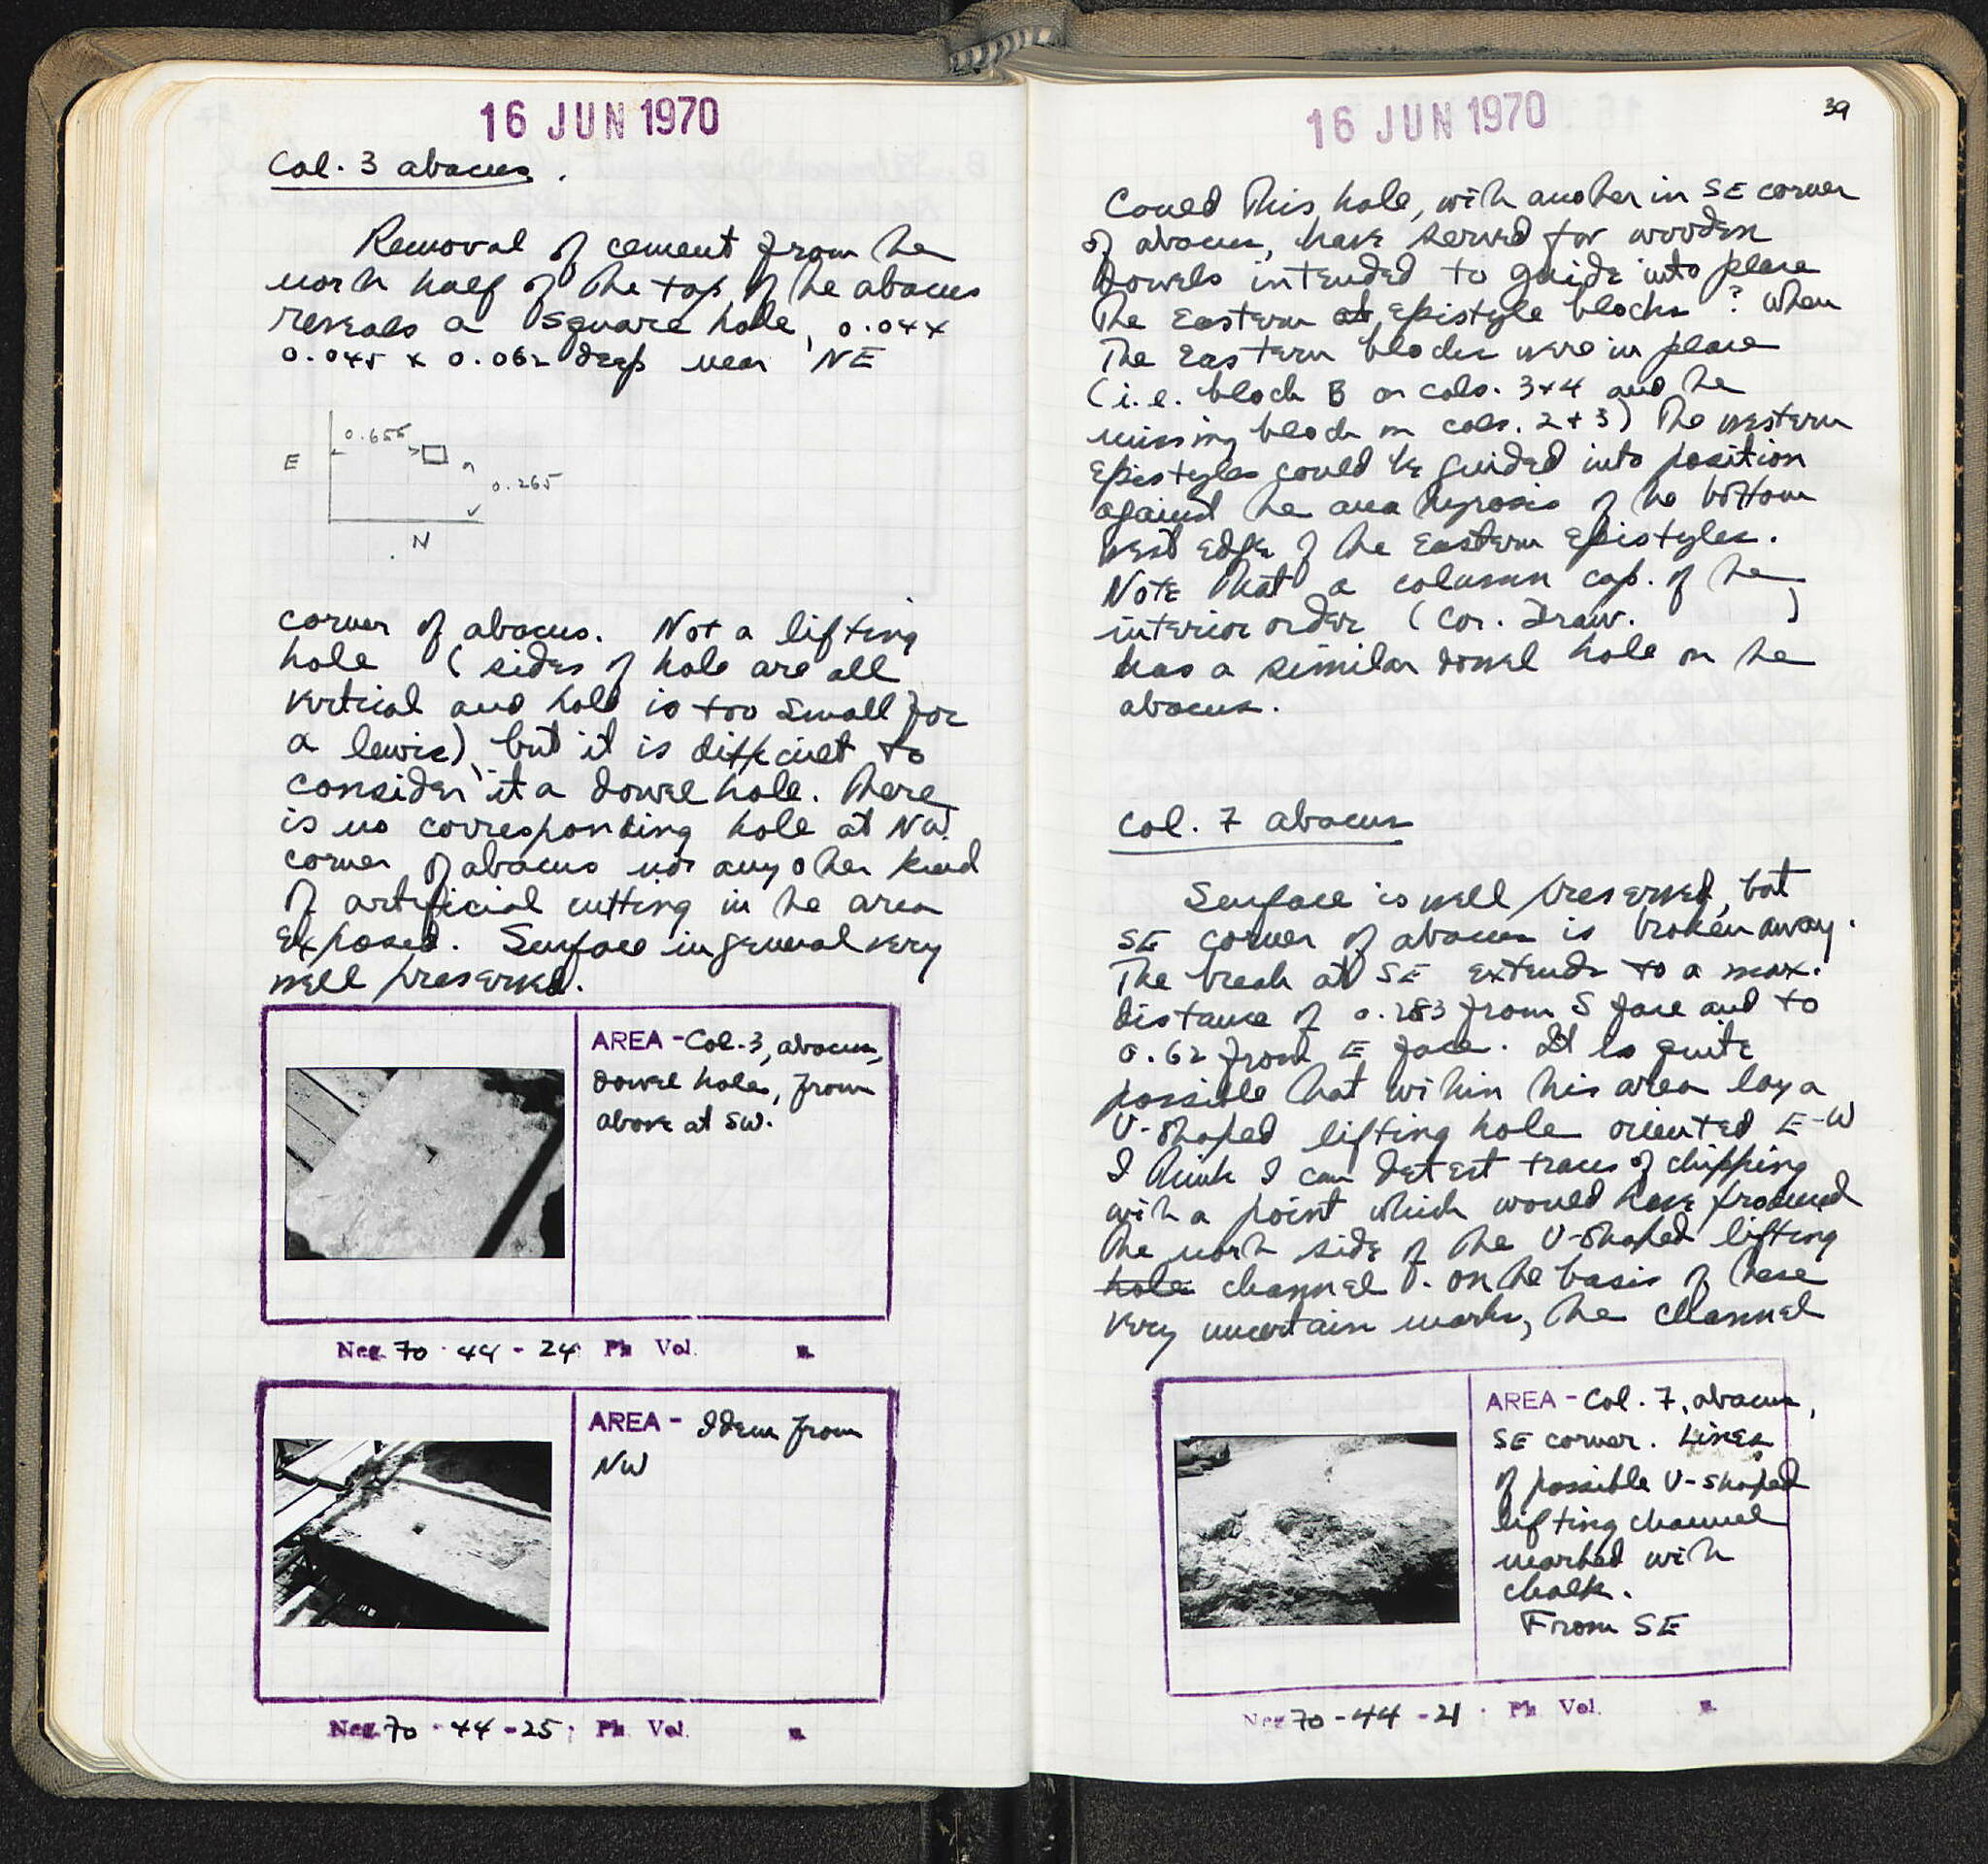 16 JUN 1970
Col. 3 abacus.
Removal of cement from the
north half of the top of the abacus
reveals a square hole, 0.04 x
0.045 x 0.062 deep near NE
0.655
E
0.265
N
corner of abacus. Not a lifting
hole (sides of hole are all
vertical and hole is too small for
a lewis), but it is difficult to
consider it a dowel hole. There
is no corresponding hole at NW
corner of abacus nor any other kind
of artificial cutting in the area
exposed. Surface in general very
well preserved.
AREA - Col. 3, abacus,
dowel hole, from
above at SW.
Neg. 70-44-24 Ph Vol.
AREA - Idem from
NW
Neg. 70-44-25; Ph Vol.
16 JUN 1970
39
Could this hole, with another in SE corner
of abacus, have served for wooden
dowels intended to guide into place
the Eastern Epistyle blocks? When
the Eastern blocks were in place
(i.e. block B on cols. 3+4 and the
missing block on cols. 2+3) the western
Epistyles could be guided into position
against the anathyrosis of the bottom
west edge of the Eastern Epistyles.
Note that a column cap. of the
interior order (Cor. Draw. )
has a similar dowel hole on the
abacus.
Col. 7 abacus
Surface is well preserved, but
SE corner of abacus is broken away.
The break at SE extends to a max.
distance of 0.283 from S face and to
0.62 from E face. It is quite
possible that within this area lay a
U-shaped lifting hole oriented E-W
I think I can detect traces of chipping
with a point which would have produced
the north side of the U-shaped lifting
hole channel. On the basis of these
very uncertain marks, the channel
AREA - Col. 7, abacus,
SE corner. Lines
of possible U-shaped
lifting channel
marked with
chalk.
From SE
Neg. 70-44-21 Ph Vol.